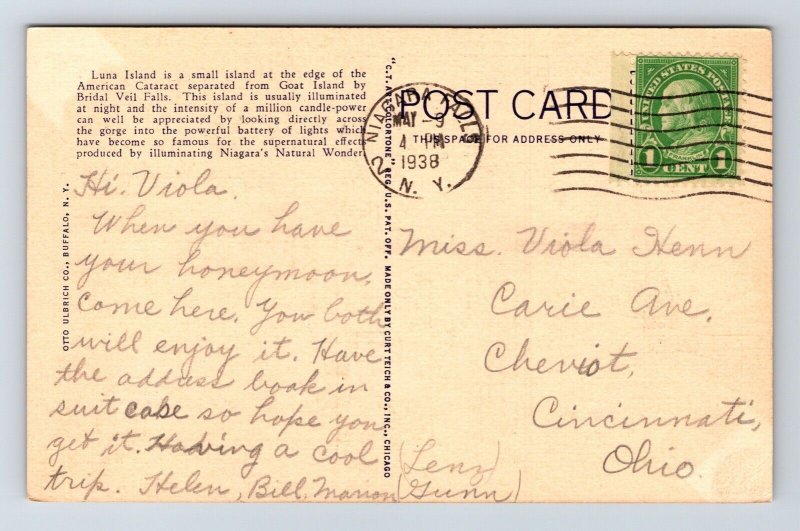 Luna Island is a small island at the edge of the
American Cataract separated from Goat Island by
Bridal Veil Falls. This island is usually illuminated
at night and the intensity of a million candle-power
can well be appreciated by looking directly across
the gorge into the powerful battery of lights which
have become so famous for the supernatural effects
produced by illuminating Niagara's Natural Wonder.
OTTO ULBRICH CO., BUFFALO, N. Y.
Hi. Viola.
When you have
your honeymoon,
come here. You both
will enjoy it. Have
the address book in
suit case so hope you
get it. Having a cool
trip. Helen, Bill, Marion (Lenz)
(Gunn)
"C.T. ART-COLORTONE" REG. U.S. PAT. OFF. MADE ONLY BY CURT TEICH & CO., INC., CHICAGO
POST CARD
THIS SPACE FOR ADDRESS ONLY
NIAGARA FALLS
MAY -9
4 PM
1938
N. Y.
2
UNITED STATES POSTAGE
FRANKLIN
1 CENT 1
Miss. Viola Henn
Carie Ave.
Cheviot,
Cincinnati,
Ohio.